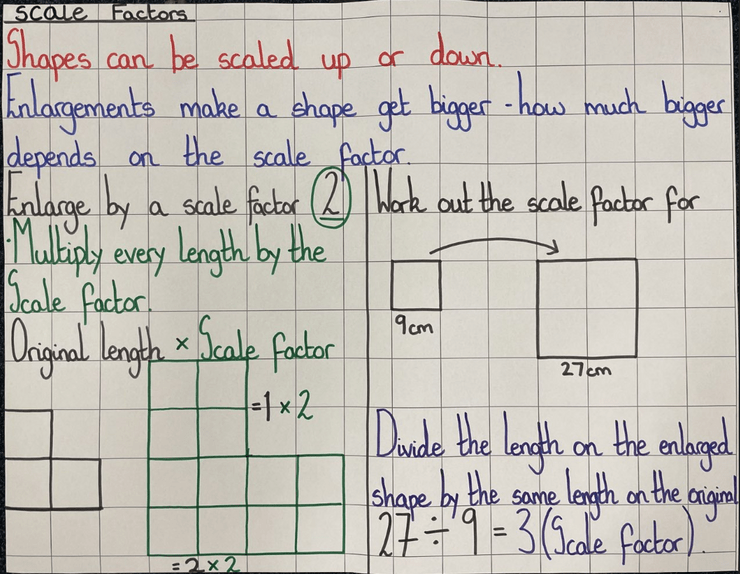 Scale Factors
Shapes can be scaled up or down.
Enlargements make a shape get bigger - how much bigger
depends on the scale factor.
Enlarge by a scale factor 2
· Multiply every length by the
Scale factor.
Original length × Scale factor
=1 × 2
= 2 × 2
Work out the scale factor for
9cm
27cm
Divide the length on the enlarged
shape by the same length on the original
27 ÷ 9 = 3 (Scale factor).